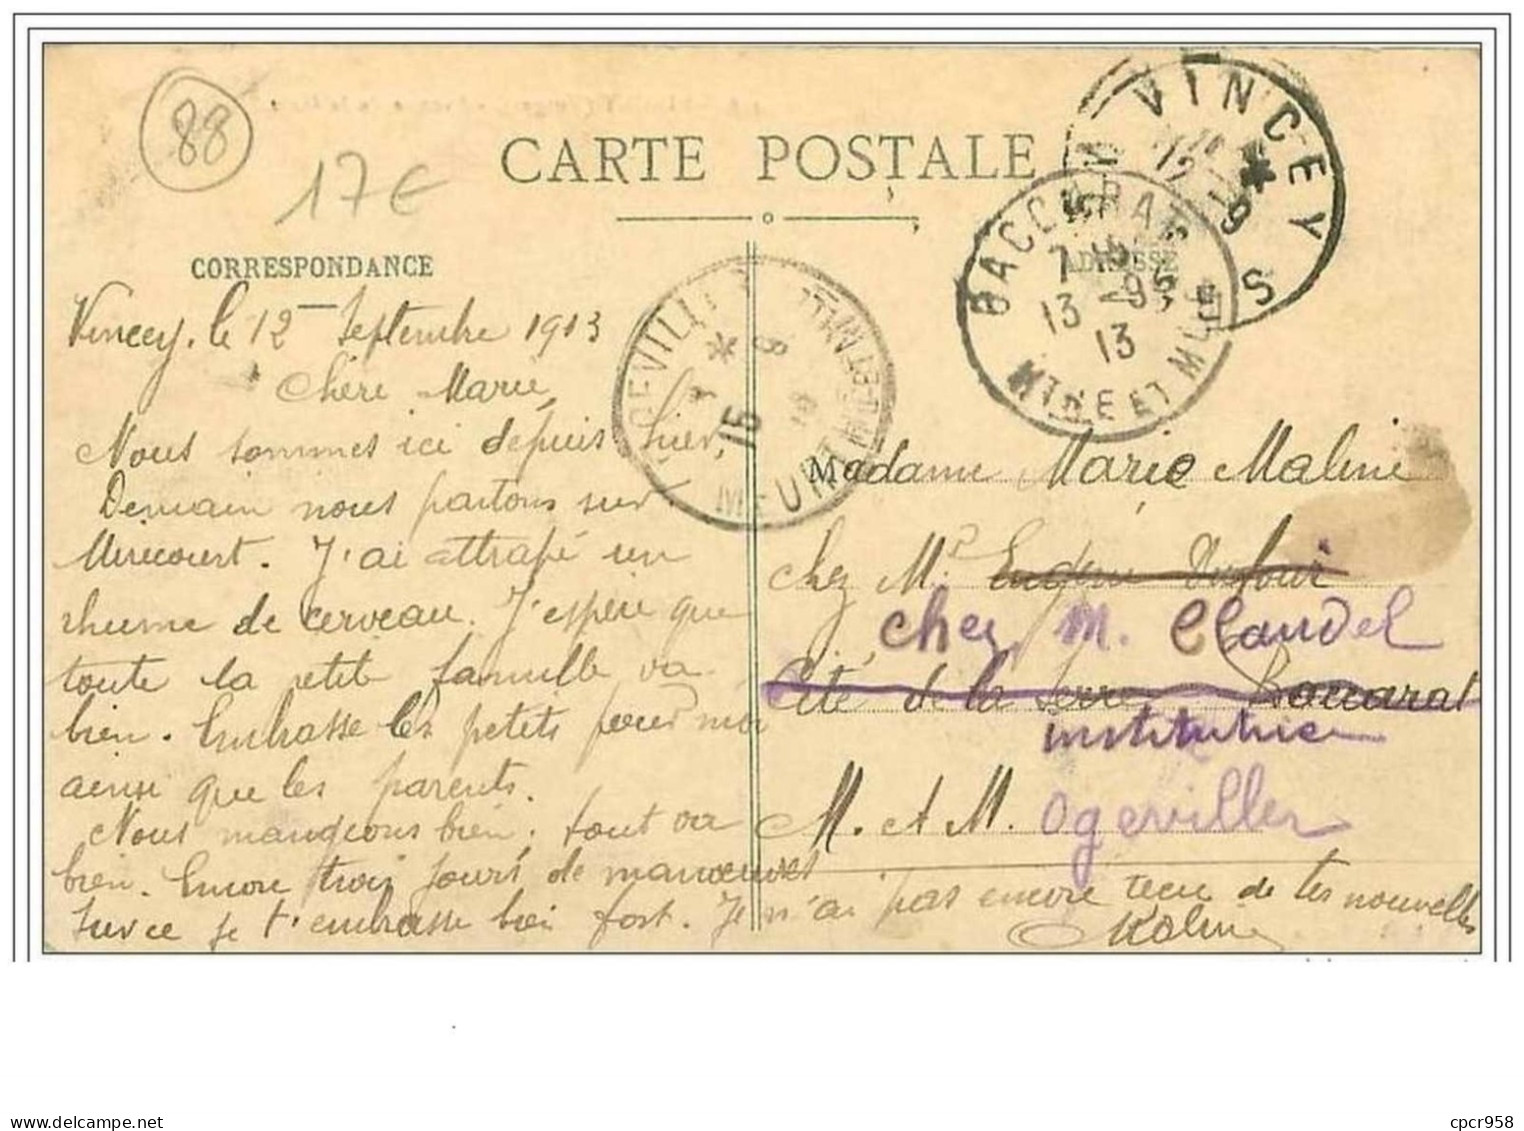 88
17€
CARTE POSTALE
CORRESPONDANCE
ADRESSE
VINCEY
VOSGES
12
9
BACCARAT
7
13 -9
13
MTHE ET MLLE
OGEVILLER
15
9
MEURTHE-ET-MLLE
Vincey, le 12 Septembre 1913
Chère Marie,
Nous sommes ici depuis hier,
Demain nous partons sur
Mirecourt. J'ai attrapé un
rhume de cerveau. J'espère que
toute la petite famille va
bien. Embrasse les petits pour moi
ainsi que les parents.
Nous mangeons bien, tout va
bien. Encore trois jours de manœuvres
Sur ce je t'embrasse bien fort. Je n'ai pas encore reçu de tes nouvelles
Madame Marie Maline
chez Mr Eugène Dufour
chez M. Claudel
Cité de la Serre Baccarat
institutrice
M. et M. Ogeviller
Maline
cpcr958